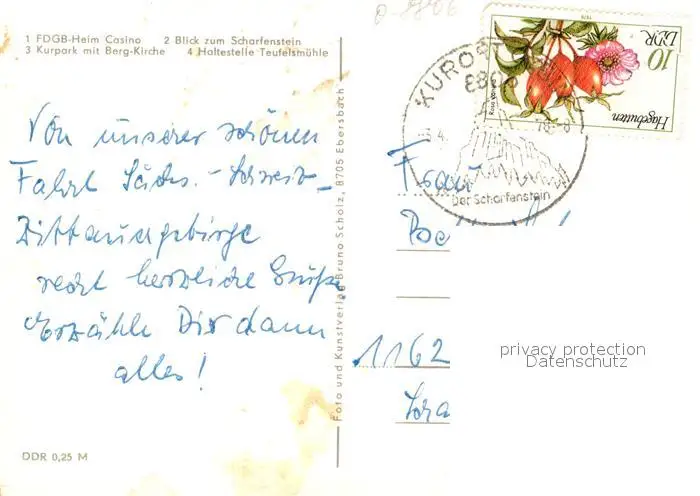 1 FDGB-Heim Casino 2 Blick zum Scharfenstein
3 Kurpark mit Berg-Kirche 4 Haltestelle Teufelsmühle
Von unserer schönen
Fahrt Sächs.-Schweiz-
Zittauergebirge
recht herzliche Grüße.
Erzähle Dir dann
alles!
DDR 0,25 M
Foto und Kunstverlag Bruno Scholz, 8705 Ebersbach
KURORT
Der Scharfenstein
10
DDR
Hagebutten
1978
Frau
1162
privacy protection
Datenschutz